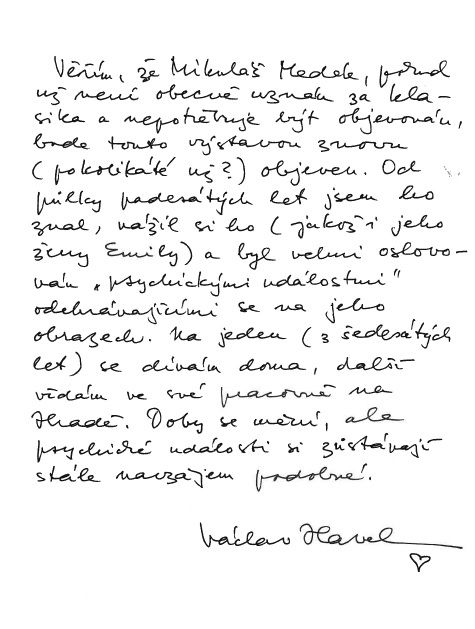 Věřím, že Mikuláš Medek, pokud
už není obecně uznán za kla-
sika a nepotřebuje být objevován,
bude touto výstavou znovu
(pokolikáté už?) objeven. Od
půlky padesátých let jsem ho
znal, vážil si ho (jakož i jeho
ženy Emily) a byl velmi oslovo-
ván „psychickými událostmi"
odehrávajícími se na jeho
obrazech. Na jeden (z šedesátých
let) se dívám doma, další
vídám ve své pracovně na
Hradě. Doby se mění, ale
psychické události si zůstávají
stále navzájem podobné.
Václav Havel